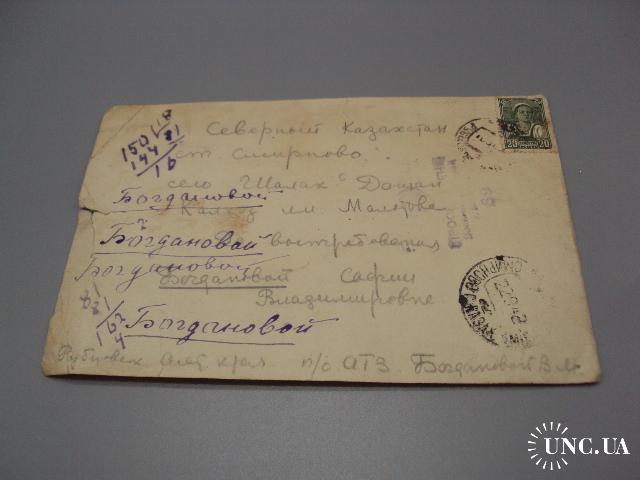 150 118
144 81
16
Северный Казахстан
ст Смирново
село Шалак Дощан
Богдановой
Колхоз им Молотова
Богдановой востребования
Богдановой
Богдановой Софии
Владимировне
81
81
162
4
Богдановой
Рубцовск Алт. края п/о АТЗ Богдановой В М
20 20
22 9 42
69
UNC.UA